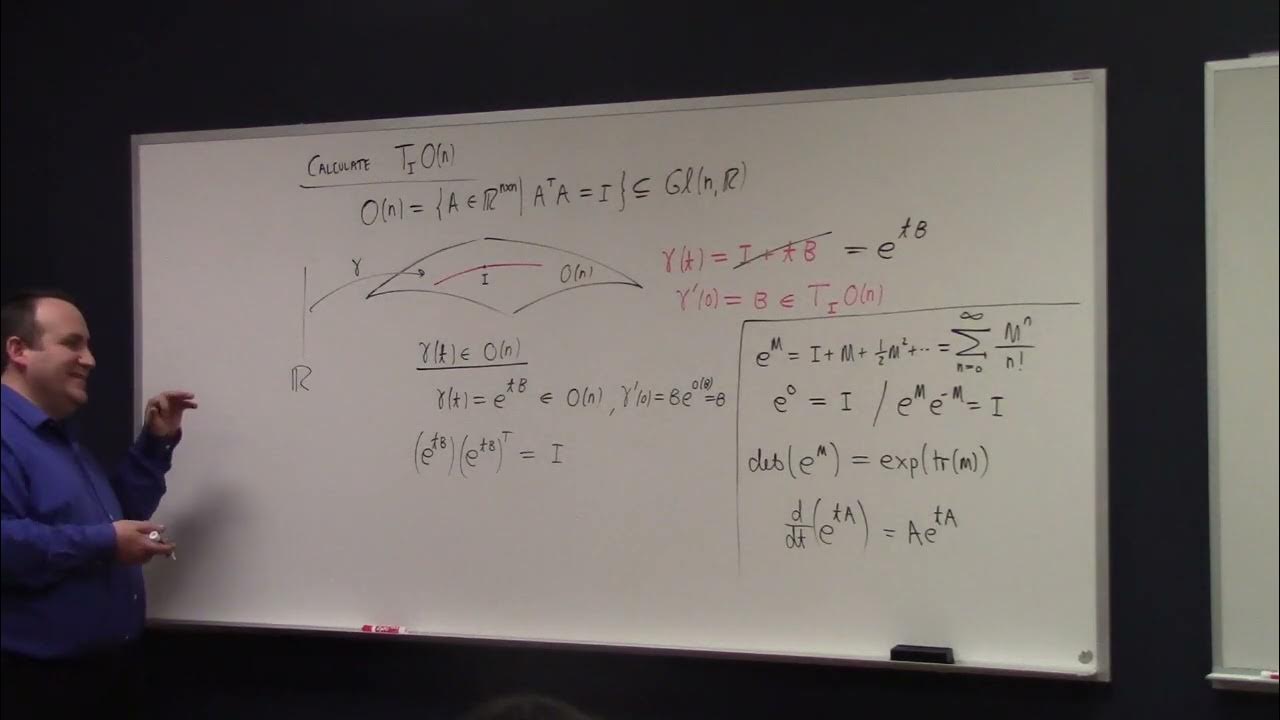 CALCULATE T_I O(n)
O(n) = {A ∈ ℝ^{n×n} | A^T A = I} ⊆ Gl(n, ℝ)
γ
I
O(n)
ℝ
γ(t) = I + tB = e^{tB}
γ'(0) = B ∈ T_I O(n)
γ(t) ∈ O(n)
γ(t) = e^{tB} ∈ O(n), γ'(0) = Be^{0(B)} = B
(e^{tB})(e^{tB})^T = I
e^M = I + M + ½M² + ⋯ = ∑_{n=0}^{∞} M^n / n!
e^0 = I / e^M e^{-M} = I
det(e^M) = exp(tr(M))
d/dt (e^{tA}) = Ae^{tA}